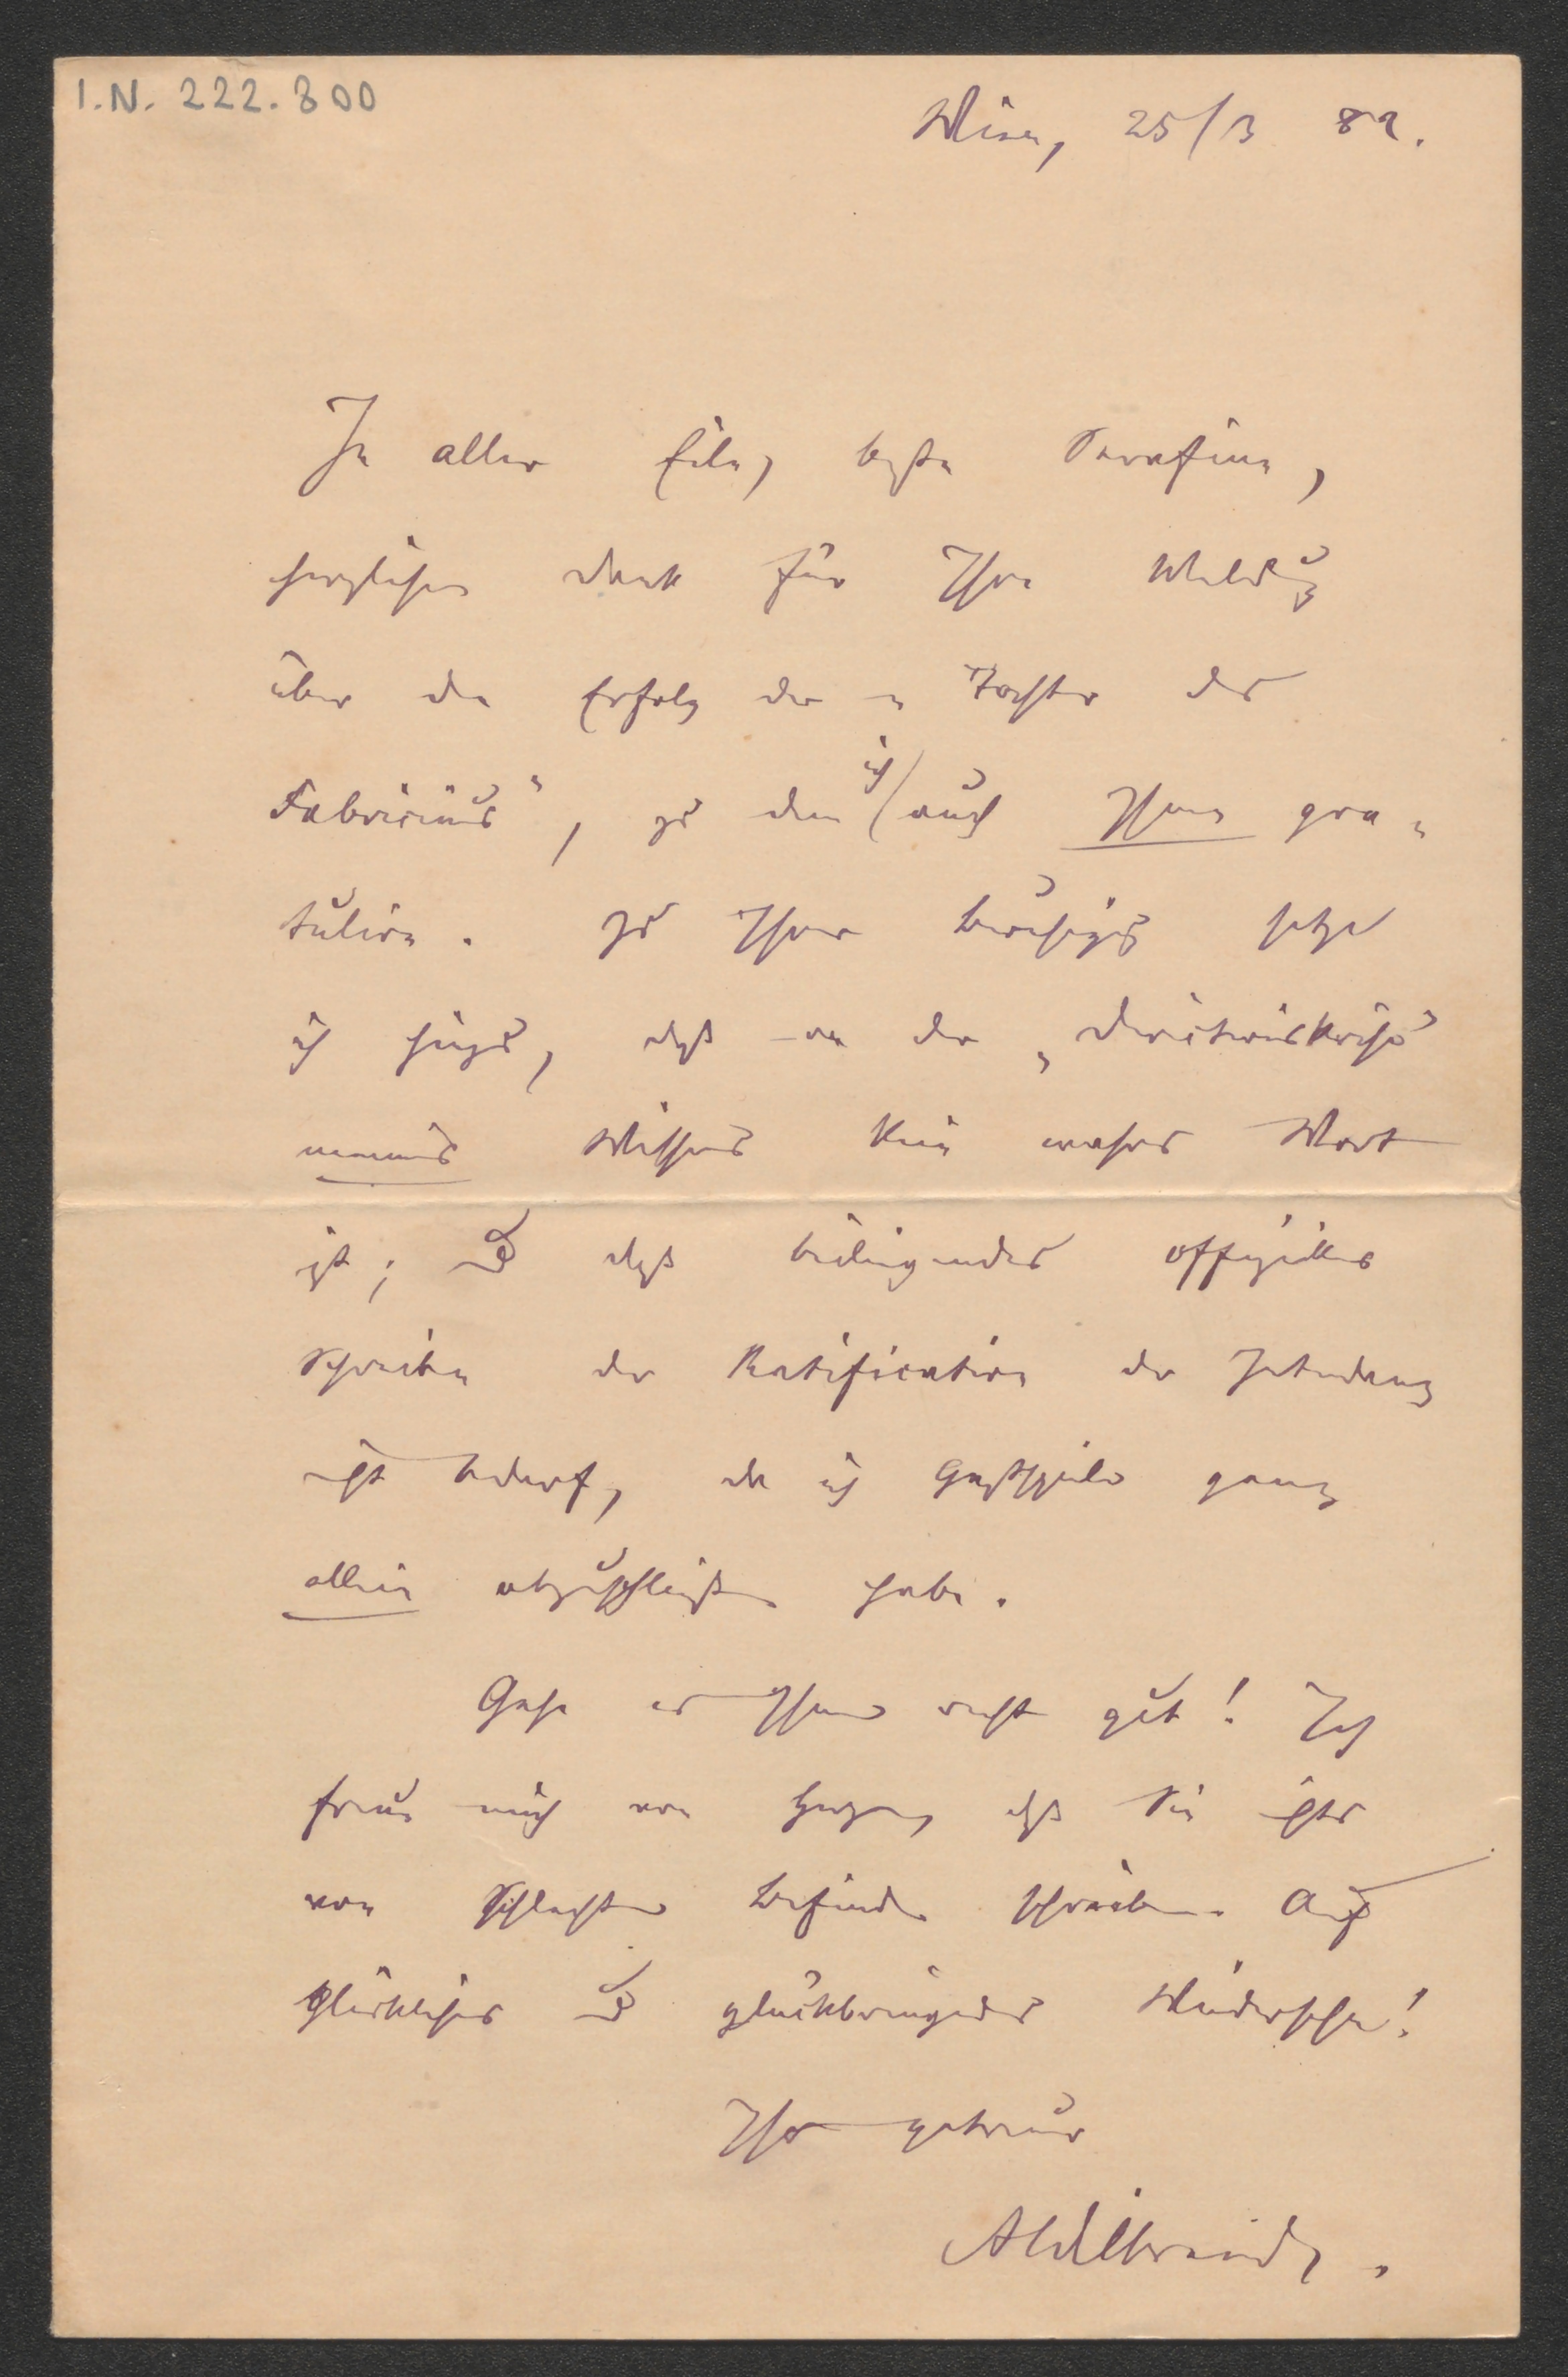 I.N. 222.800
Wien, 25/3 82.
In aller Eile, beste Serafine,
herzlichen Dank für Ihre Meldung
über den Erfolg der „Tochter des
Fabricius“, zu dem ich auch Ihnen gra-
tulire. Zu Ihrer Beruhigung setze
ich hinzu, daß an der „Directionskrisis“
meines Wissens kein wahres Wort
ist; und daß beiliegendes offizielles
Schreiben der Ratification der Intendanz
nicht bedarf, da ich Gastspiele ganz
allein abzuschließen habe.
Gehe es Ihnen recht gut! Ich
freue mich von Herzen, daß Sie nichts
von schlechtem Befinden schreiben. Auf
glückliches und glückbringendes Wiedersehn!
Ihr getreuer
AWilbrandt.